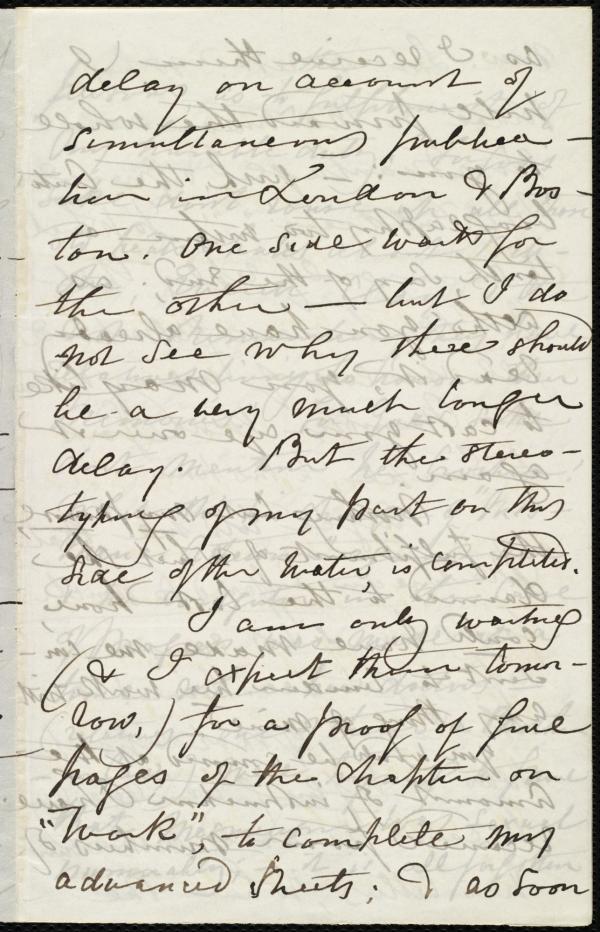 delay on account of
simultaneous publica-
tion in London & Bos-
ton. One side waits for
the other — but I do
not see why there should
be a very much longer
delay. But the stereo-
typing of my part on this
side of the water, is completed.
I am only waiting
(& I expect them tomor-
row,) for a proof of five
pages of the chapter on
"Work", to complete my
advanced sheets; & as soon